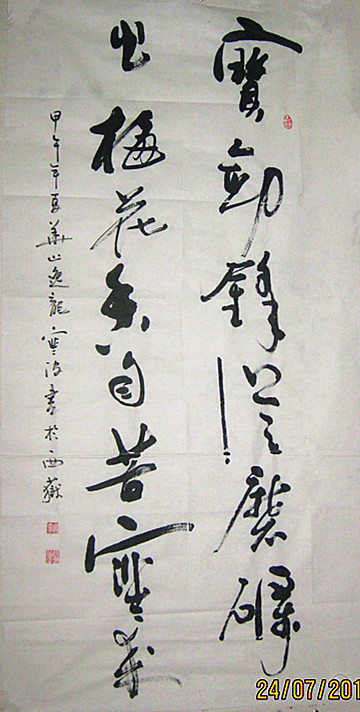 寶劍鋒從磨礪
出梅花香自苦寒來
甲午年夏華山逸龍寒波書於西嶽
24/07/201